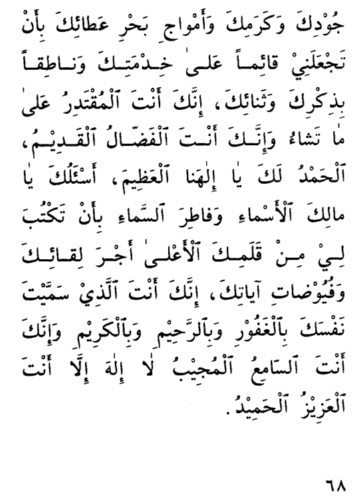 جُوْدِكَ وَكَرَمِكَ وَأَمْواجِ بَحْرِ عَطائِكَ بِأَنْ
تَجْعَلَنِيْ قائِماً عَلىٰ خِدْمَتِكَ وَناطِقاً
بِذِكْرِكَ وَثَنائِكَ، إِنَّكَ أَنْتَ الْمُقْتَدِرُ عَلىٰ
ما تَشاءُ وَإِنَّكَ أَنْتَ الْفَضّالُ الْقَدِيْمُ،
الْحَمْدُ لَكَ يا إِلٰهَنا الْعَظِيمَ، أَسْئَلُكَ يا
مالِكَ الْأَسْماءِ وَفاطِرَ السَّماءِ بِأَنْ تَكْتُبَ
لِيْ مِنْ قَلَمِكَ الْأَعْلىٰ أَجْرَ لِقائِكَ
وَفُيُوْضاتِ آياتِكَ، إِنَّكَ أَنْتَ الَّذِيْ سَمَّيْتَ
نَفْسَكَ بِالْغَفُوْرِ وَبِالرَّحِيْمِ وَبِالْكَرِيْمِ وَإِنَّكَ
أَنْتَ السّامِعُ الْمُجِيْبُ لا إِلهَ إِلَّا أَنْتَ
الْعَزِيْزُ الْحَمِيْدُ.
٦٨